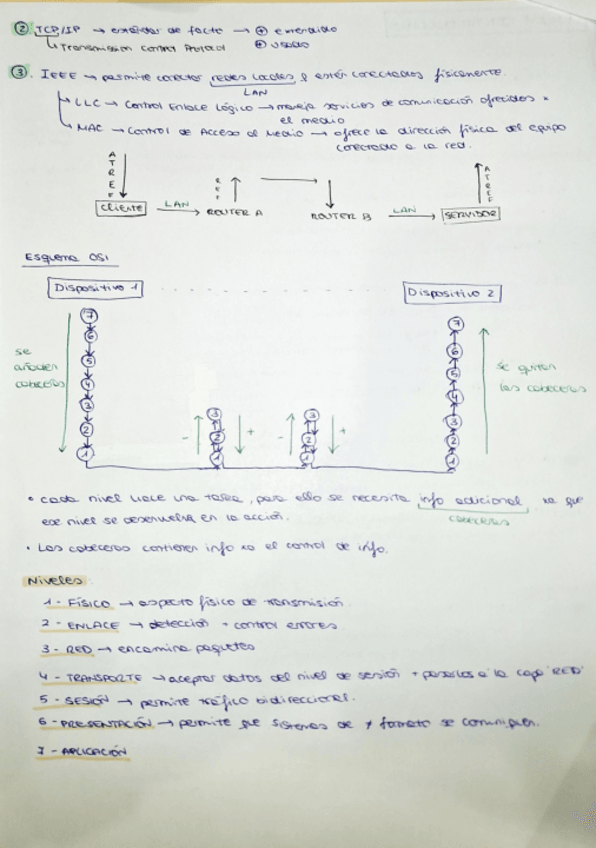 ② TCP/IP → estándar de facto → ⊕ extendido
↳ Transmission Control Protocol ⊕ usado
③. IEEE → permite conectar redes locales y estén conectados físicamente.
LAN
LLC → Control Enlace Lógico → maneja servicios de comunicación ofrecidos x
el medio
MAC → Control de Acceso al Medio → ofrece la dirección física del equipo
conectado a la red.
A T R E F
R E F
A T R E F
Cliente LAN → ROUTER A ROUTER B LAN → SERVIDOR
Esquema OSI
Dispositivo 1 Dispositivo 2
7 6 5 4 3 2 1
se añaden cabeceras
- 3 2 1 +
- 3 2 1 +
7 6 5 4 3 2 1
se quitan las cabeceras
• Cada nivel hace una tarea, para ello se necesita info adicional, xa que
ese nivel se desenvuelva en la acción.
cabeceras
• Las cabeceras contienen info xa el control de info.
Niveles
1 - FÍSICO → aspecto físico de transmisión.
2 - ENLACE → detección + control errores
3 - RED → encamina paquetes
4 - TRANSPORTE → aceptar datos del nivel de sesión + pasarlos a la capa 'RED'
5 - SESIÓN → permite tráfico bidireccional.
6 - PRESENTACIÓN → permite que sistemas de ≠ formato se comuniquen.
7 - APLICACIÓN